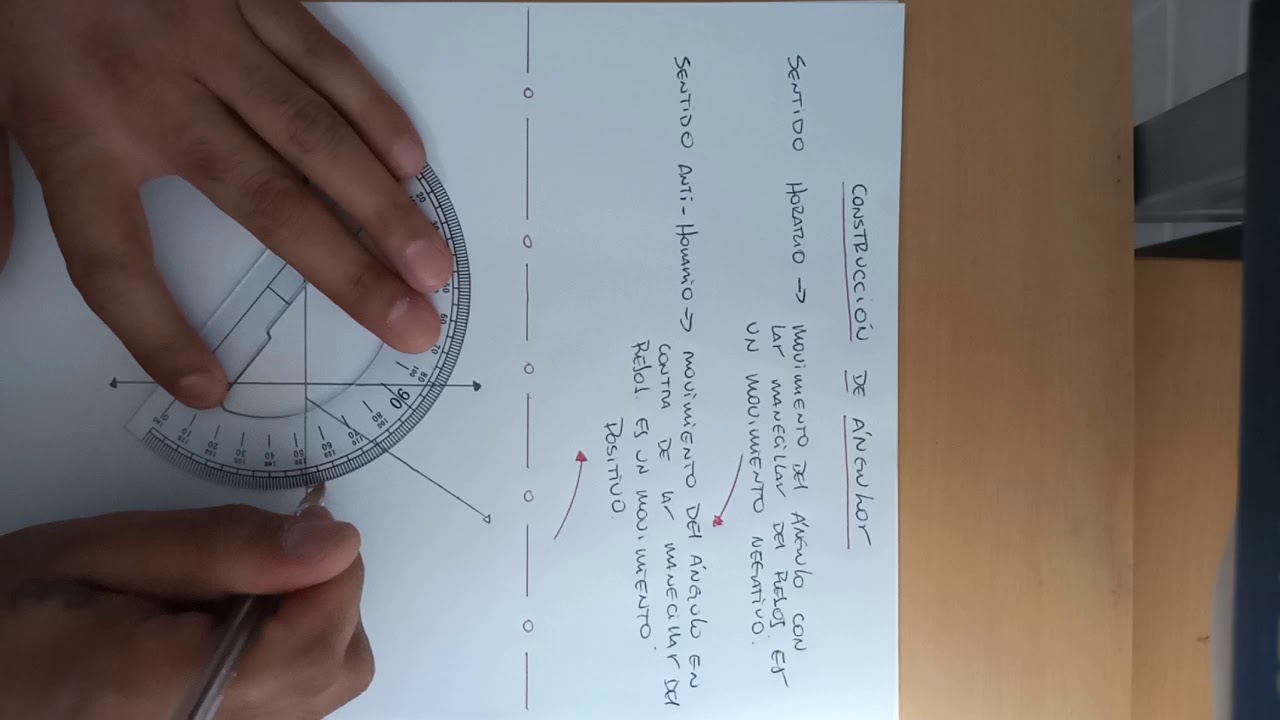 CONSTRUCCIÓN DE ÁNGULOS
SENTIDO HORARIO → MOVIMIENTO DEL ÁNGULO CON
LAS MANECILLAS DEL RELOJ. ES
UN MOVIMIENTO NEGATIVO.
SENTIDO ANTI-HORARIO → MOVIMIENTO DEL ÁNGULO EN
CONTRA DE LAS MANECILLAS DEL
RELOJ. ES UN MOVIMIENTO
POSITIVO.
20
60
70
80
100
90
80
100
70
110
60
120
50
130
40
140
30
150
20
160
10
170
0
180